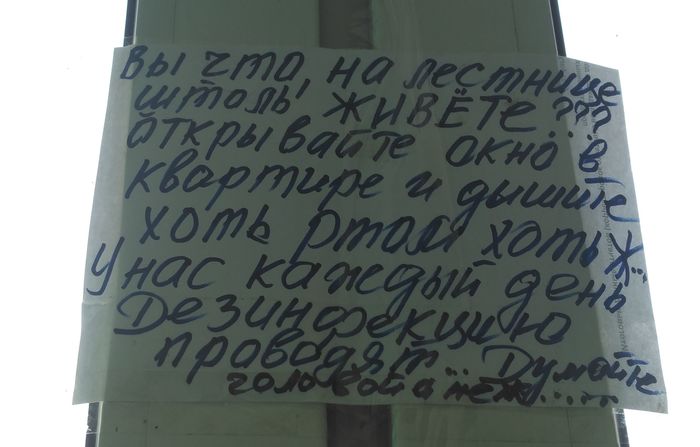 Вы что, на лестнице
штоль, ЖИВЁТЕ???
Открывайте окно в
квартире и дышите
хоть ртом хоть Ж...
У нас каждый день
Дезинфекцию
проводят... Думайте
головой а не Ж.....